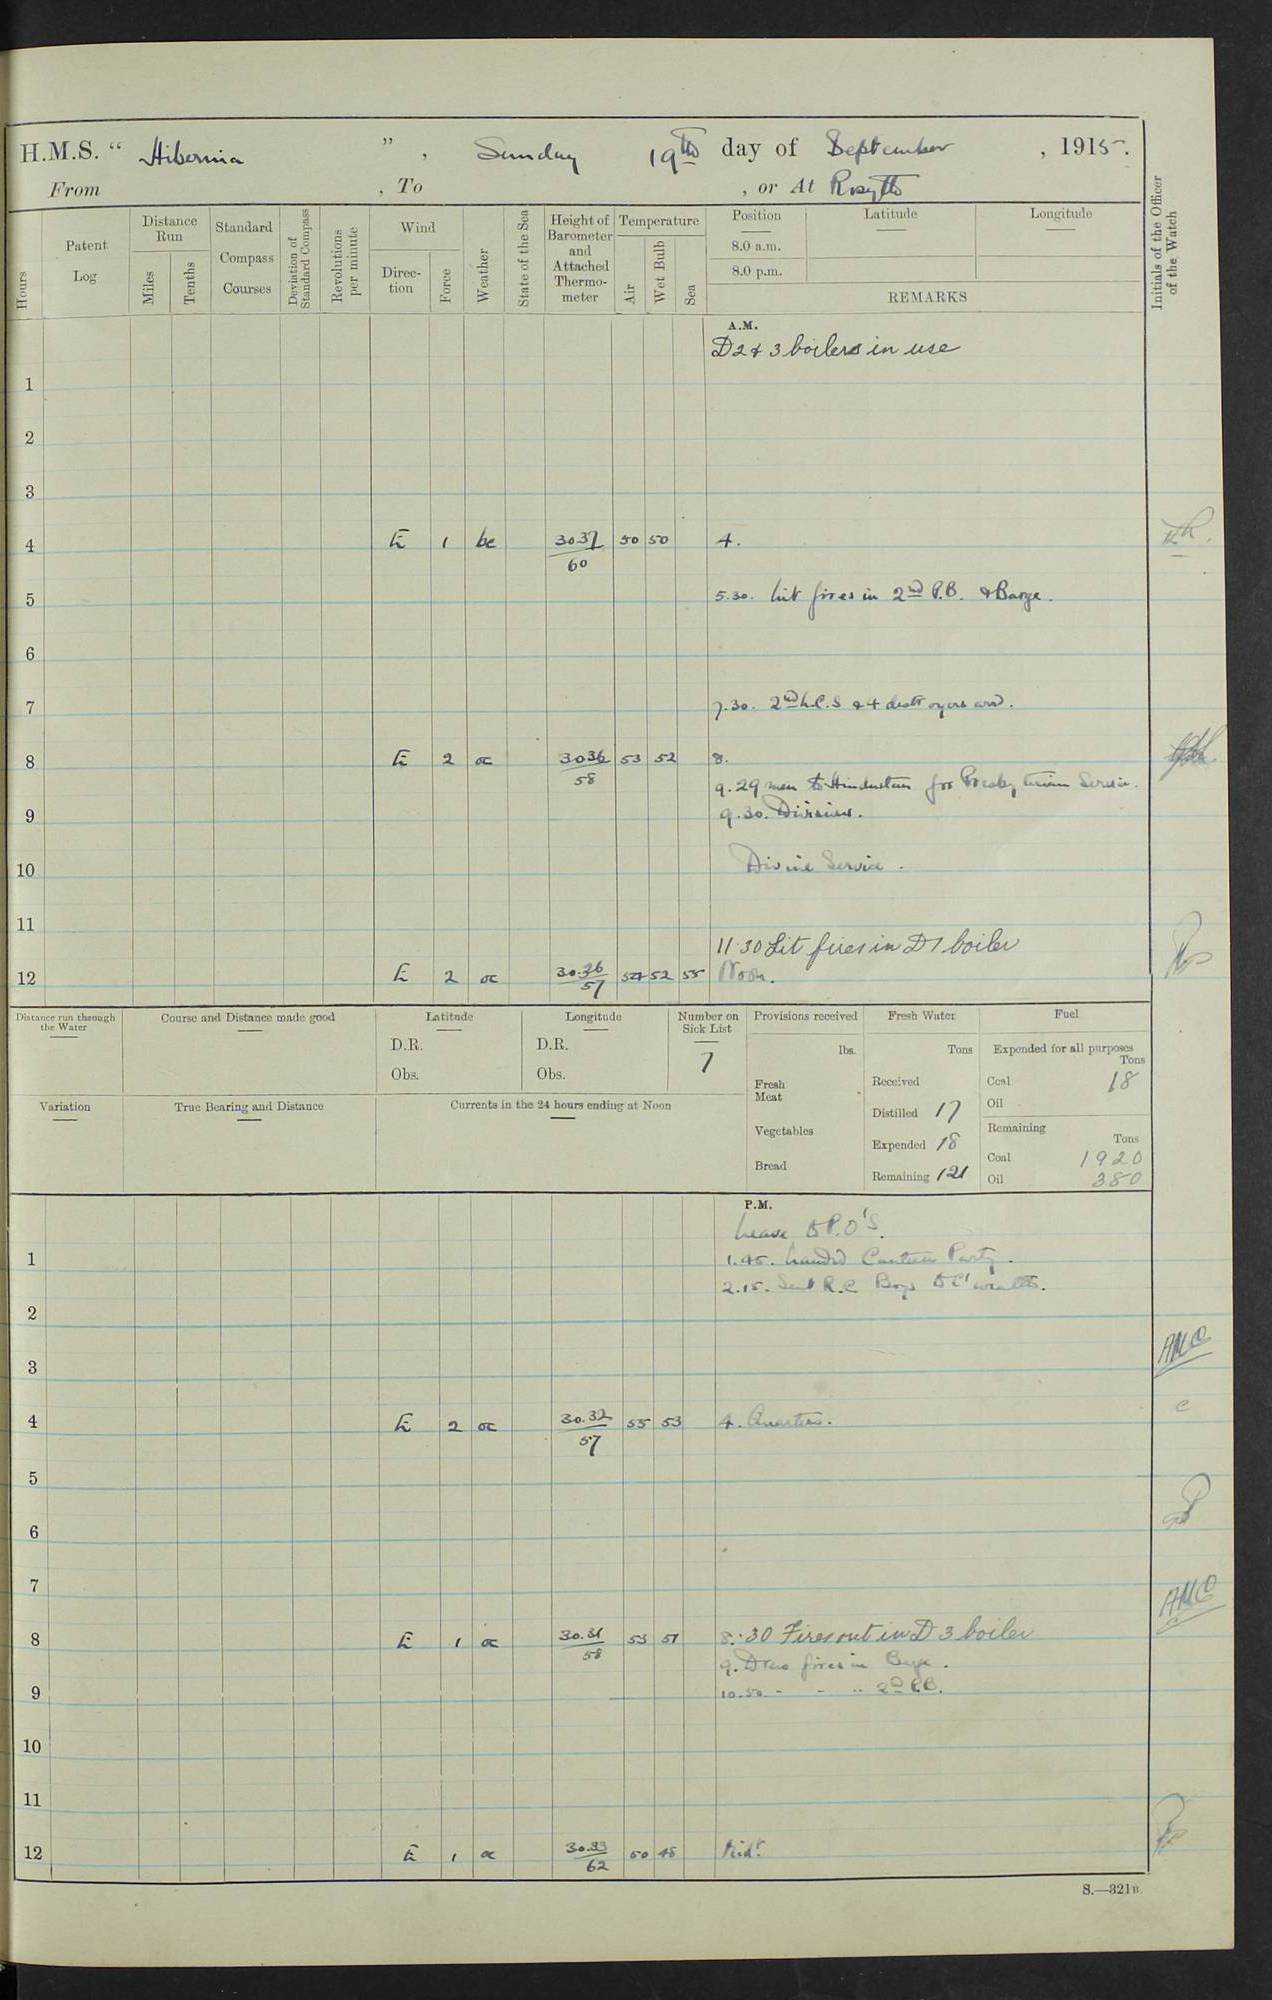 H.M.S. “ Hibernia ” , Sunday 19th day of September , 1915 .
From , To , or At Rosyth
Hours
Patent Log
Distance Run
Miles
Tenths
Standard Compass Courses
Deviation of Standard Compass
Revolutions per minute
Wind
Direc- tion
Force
Weather
State of the Sea
Height of Barometer and Attached Thermo- meter
Temperature
Air
Wet Bulb
Sea
Position
8.0 a.m.
8.0 p.m.
Latitude
Longitude
REMARKS
Initials of the Officer of the Watch
A.M.
D2 & 3 boilers in use
1
2
3
4 E 1 bc 30.37 50 50 4.
60
5.30. Lit fires in 2nd P.B. & Barge.
5
6
7 7.30. 2nd L.C.S & 4 destroyers arrd.
8 E 2 oc 30.36 53 52 8.
58
9. 29 men to Hindustan for Presbyterian Service.
9 9.30. Divisions.
10 Divine Service.
11
11.30 Lit fires in D1 boiler
12 E 2 oc 30.36 54 52 55 Noon.
57
Distance run through the Water
Course and Distance made good
Latitude
D.R.
Obs.
Longitude
D.R.
Obs.
Number on Sick List
7
Provisions received
lbs.
Fresh Meat
Vegetables
Bread
Fresh Water
Tons
Received
Distilled 17
Expended 18
Remaining 121
Fuel
Expended for all purposes
Tons
Coal 18
Oil
Remaining
Tons
Coal 1920
Oil 380
Variation
True Bearing and Distance
Currents in the 24 hours ending at Noon
P.M.
Leave to P.O's.
1 1.45. Landed Canteen Party.
2.15. Sent R.C Boys to C'wealth.
2
3
AMC
4 E 2 oc 30.32 55 53 4. Quarters.
57
5
6
7
AMC
8 E 1 oc 30.31 53 51 8.30 Fires out in D3 boiler
58
9. Drew fires in Barge.
9 10.50 - - " 2nd P.B.
10
11
12 E 1 oc 30.33 50 48 Midt.
62
S.—321B.